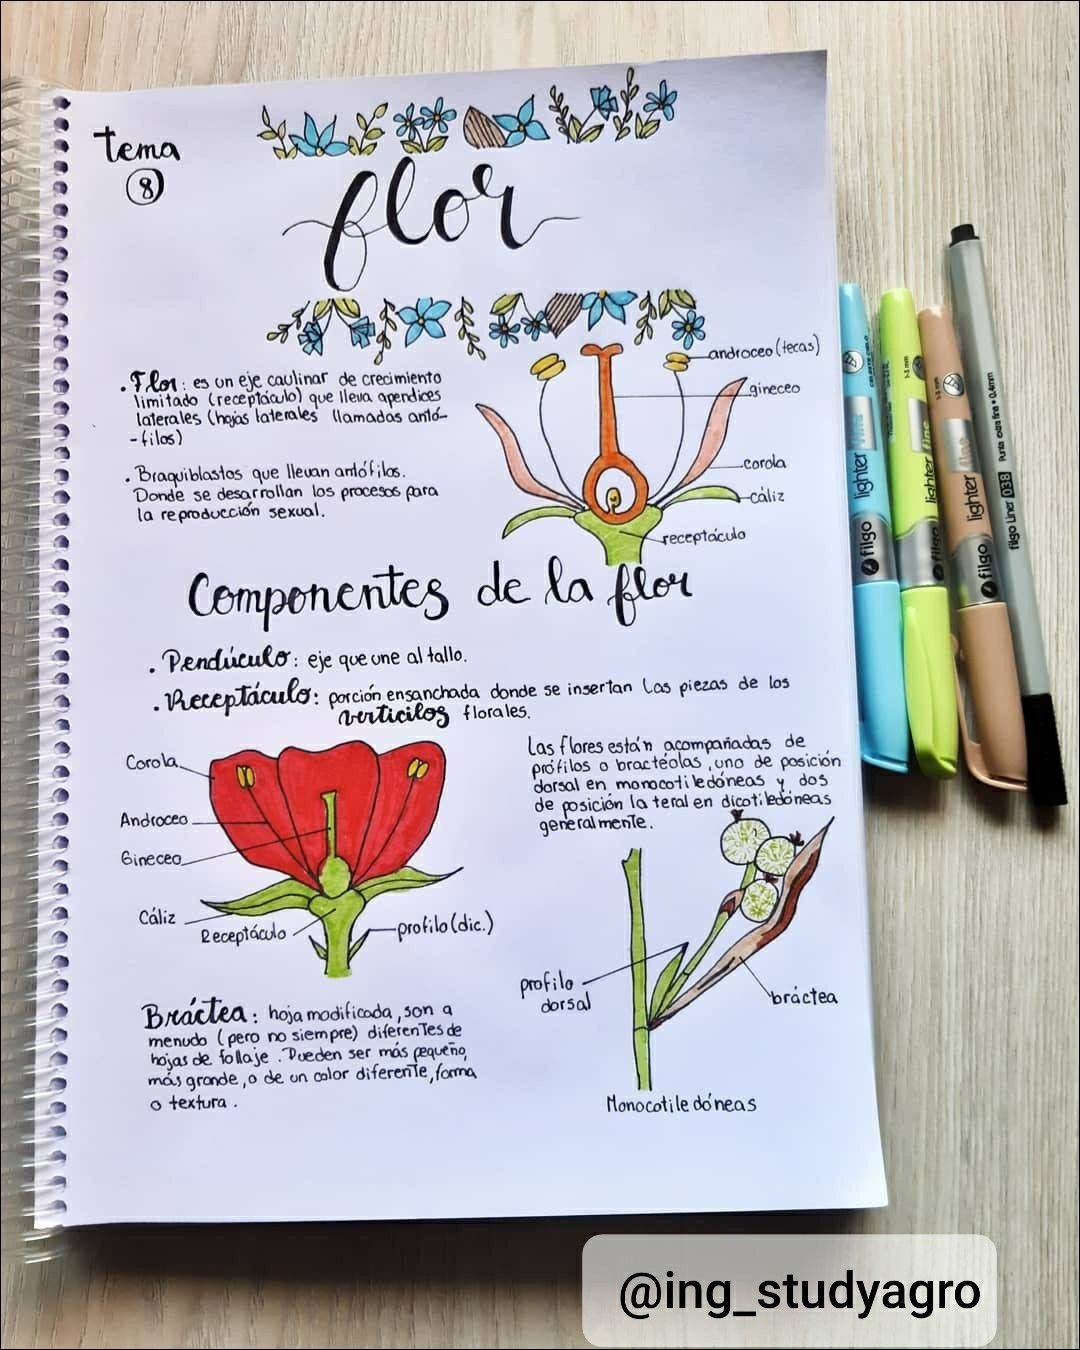 tema
8
flor
. Flor: es un eje caulinar de crecimiento
limitado (receptáculo) que lleva apendices
laterales (hojas laterales llamadas antó-
-filos)
. Braquiblastos que llevan antófilos.
Donde se desarrollan los procesos para
la reproducción sexual.
androceo (tecas)
gineceo
corola
cáliz
receptáculo
Componentes de la flor
. Pendúculo: eje que une al tallo.
. Receptáculo: porción ensanchada donde se insertan las piezas de los
verticilos florales.
Corola
Androceo
Gineceo
Cáliz
Receptáculo
profilo (dic.)
Las flores están acompañadas de
prófilos o bractéolas, uno de posición
dorsal en monocotiledóneas y dos
de posición lateral en dicotiledóneas
generalmente.
profilo
dorsal
bráctea
Monocotiledóneas
Bráctea: hoja modificada, son a
menudo (pero no siempre) diferentes de
hojas de follaje. Pueden ser más pequeño,
más grande, o de un color diferente, forma
o textura.
filgo lighter fine
filgo lighter fine
filgo lighter fine
filgo Liner 038 Punta extra fina • 0.4mm
@ing_studyagro